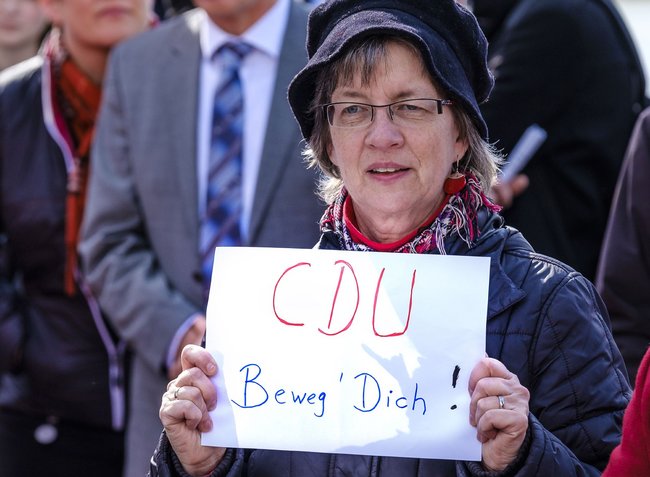 CDU
Beweg' Dich !